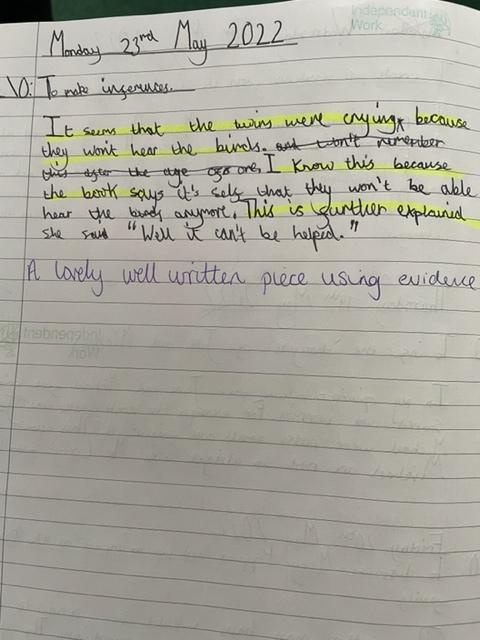 Independent
Work
Monday 23rd May 2022
LO: To make inferences.
It seems that the twins were crying, because
they won't hear the birds. and won't remember
this after the age of one, I know this because
the book says it's self that they won't be able
hear the birds anymore. This is further explained
she said "Well it can't be helped."
A lovely well written piece using evidence